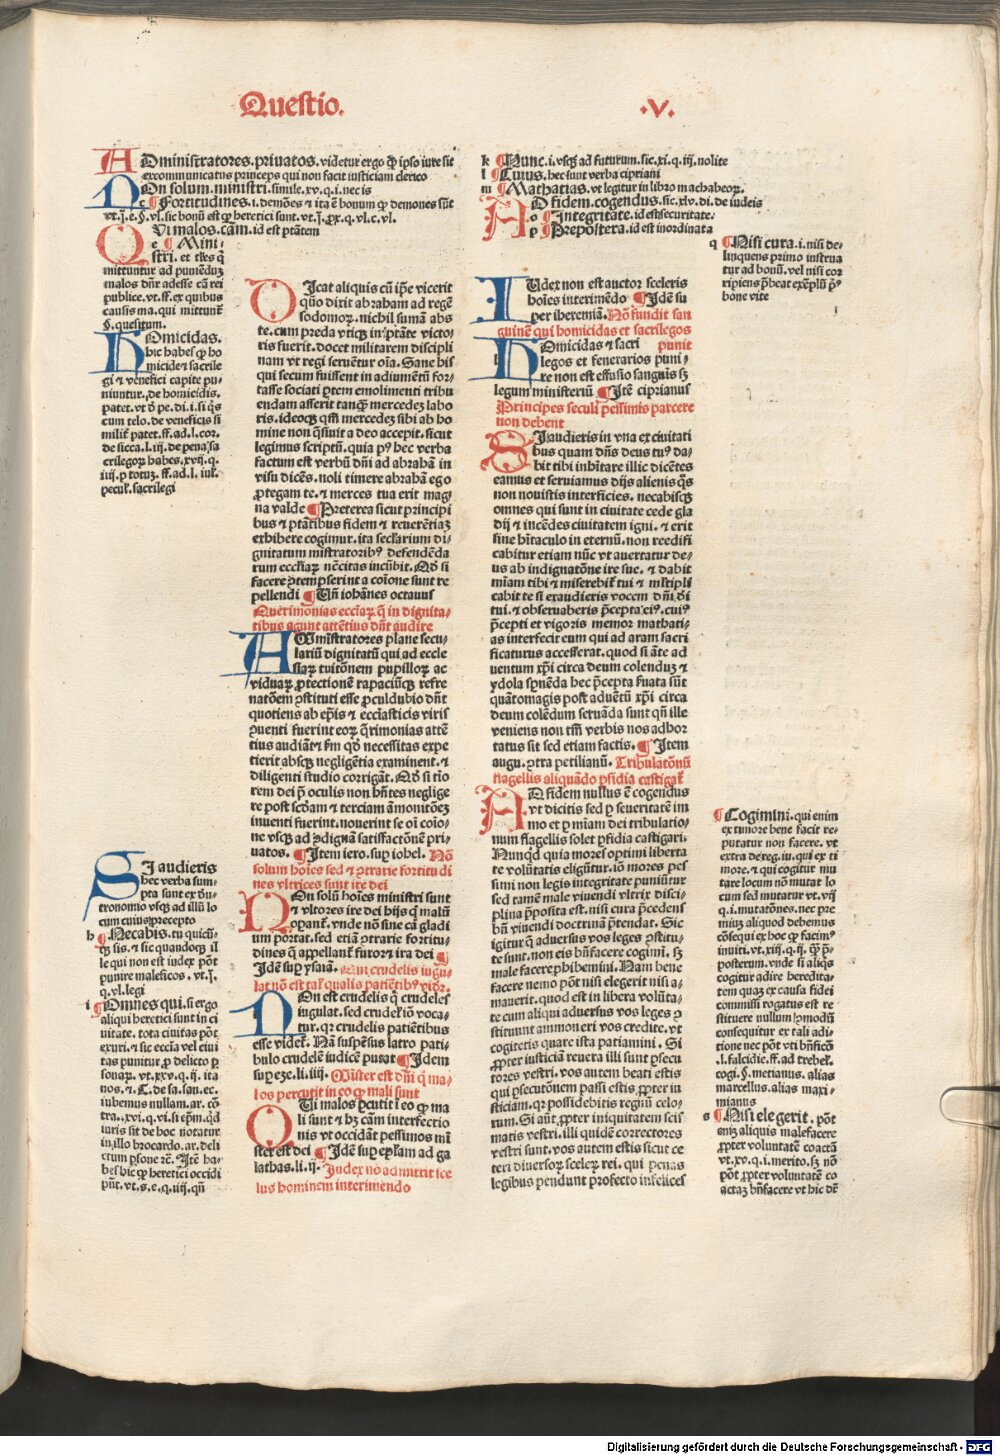 Questio.
.V.
ADministratores.priuatos.videtur ergo qđ ipso iure sit
excommunicatus princeps qui non facit iusticiam clerico
NOn solum.ministri.simile.xv.q.i.nec is
¶Fortitudines.i.demões ⁊ ita ē bonum qꝫ demones sūt
QVi malos.cām.id est ptātem
e ¶Mini-
stri.et tles q̄
mittuntur ad puniēdū
malos dn̄r adesse cā rei
publice.vt.ff.ex quibus
causis ma.qui mittunt
§.questum.
HOmicidas.
hic habes qꝫ ho
micide ⁊ sacrile
gi ⁊ venefici capite pu-
niuntur.de homicidis.
cum telo.de veneficis si
milit̄ patet.ff.ad.l.cor.
de sicca.l.iij.de pena sa
crilegoꝝ habes.xvij.q.
iiij.ꝑ totū.ff.ad.l.iul.
pecul.sacrilegi
SI audieris
hec verba sum-
pta sunt ex deu-
tronomio vsqꝫ ad illū lo
cum cuius precepto
h ¶Necabis.tu quicū-
qꝫ sis.⁊ sic quandoqꝫ il
le qui non est iudex pōt
punire maleficos.vt.j.
q.vl.legi
i ¶Omnes qui.si ergo
aliqui heretici sunt in ci
uitate.tota ciuitas pōt
exuri.⁊ sic eccīa vel ciui
tas punitur ꝓ delicto ꝑ
sonaꝝ.vt.xxv.q.ij.ita
nos.⁊.C.de sa.san.ec.
iubemus nullam.ar.cō
tra..xvi.q.vi.si ep̄m.qđ
iuris sit de hoc notatur
in illo brocardo.ar.deli
ctum ꝑsone ⁊c̄.Itē ha-
bes hic qꝫ heretici occidi
pn̄t.vt.s.e.q.iiij.qn̄
DIcat aliquis cū ip̄e vicerit
quō dixit abrabam ad regē
sodomoꝝ.nichil sumā abs
te.cum preda vtiqꝫ in ptāte victo-
ris fuerit.docet militarem discipli
nam vt regi seruētur oīa.Sane his
qui secum fuissent in adiumētū for-
tasse sociati ꝑtem emolimenti tribu
endam asserit tanqꝫ mercedeꝫ labo
ris.ideoqꝫ qm̄ mercedeꝫ sibi ab ho
mine non q̄siuit a deo accepit.sicut
legimus scriptū.quia pꝰ hec verba
factum est verbū dn̄i ad abrahā in
visu dicēs.noli timere abrahā ego
ꝓtegam te.⁊ merces tua erit mag
na valde ¶Preterea sicut principi
bus ⁊ ptātibus fidem ⁊ reuerētiaꝫ
exhibere cogimur.ita seclarium di-
gnitatum mīstratoribꝰ defendēda
rum eccīaꝝ nc̄citas incūbit.Qđ si
facere ꝯtempserint a cōione sunt re
pellendi ¶Vn̄ iohānes octauus
Querimonias eccīaꝝ q̄ in dignita-
tibus agunt attētius dn̄t audire
ADmīstratores plane secu-
lariū dignitatū qui ad eccle
siaꝝ tuitōnem pupilloꝝ ac
viduaꝝ ꝓtectionē rapaciūqꝫ refre
natōem ꝯstituti esse ꝓculdubio dn̄t
quotiens ab ep̄is ⁊ eccīasticis viris
ꝯuenti fuerint eoꝝ q̄rimonias attē
tius audiāt ⁊ ẜm qđ necessitas expe
tierit absqꝫ negligētia examinent.⁊
diligenti studio corrigāt.Qđ si tio
rem dei p̄ oculis non hn̄tes neglige
re post sēdam ⁊ terciam āmonitōeꝫ
inuenti fuerint.nouerint se oī cōio-
ne vsqꝫ ad ꝯdignā satisfactōnē pri-
uatos. ¶Item iero.suꝑ iohel. Nō
solum hoīes sed ⁊ ꝯtrarie fortitudi
nes vltrices sunt ire dei
NOn solū hoīes ministri sunt
⁊ vltores ire dei hijs q̄ malū
oꝑant̄.vnde nō sine cā gladi
um portat.sed etiā ꝯtrarie fortitu-
dines q̄ appellant̄ furor ⁊ ira dei ¶
Idē suꝑ ysaiā. Non crudelis iugu-
lat nō est talꝰ qualis patiētibꝰ videt̄
NOn est crudelis q̄ crudeles
iugulat.sed crudelꝰ iō voca-
tur.qꝛ crudelis patiētibus
esse videt̄.Nā suspēsus latro pati-
bulo crudelē iudicē putat ¶Idem
suꝑ eze.li.iiij. Mīster est dn̄i q̄ ma-
los percutit in eo qꝫ mali sunt
QVi malos ꝑcutit ī eo qꝫ ma
li sunt ⁊ hꝫ cām interfectio
nis vt occidāt pessimos mī
ster est dei ¶Idē suꝑ ep̄lam ad ga
lathas.li.ij. Iudex nō admittit sce
lus hominem interimendo
k ¶Nunc.i.vsqꝫ ad futurum.sic.xi.q.iij.nolite
l ¶Cuius.hec sunt verba cipriani
m ¶Mathatias.vt legitur in libro machabeoꝝ.
AD fidem.cogendus.sic.xlv.di.de iudeis
o ¶Integritate.id est securitate.
p ¶Prepostera.id est inordinata
IVdex non est auctor sceleris
hoīes interimēdo ¶Idē su
per iheremiā. Nō fundit san
guinē qui homicidas et sacrilegos
punit
HOmicidas ⁊ sacri
legos et fenerarios puni-
re non est effusio sanguis sꝫ
legum ministeriū ¶Itē ciprianus
Principes seculi pessimis parcere
non debent
SI audieris in vna ex ciuitati
bus quam dn̄s deus tuꝰ da-
bit tibi inhītare illic dicētes
eamus et seruiamus dijs alienis q̄s
non nouistis interficies.necabisqꝫ
omnes qui sunt in ciuitate cede gla
dij ⁊ incēdes ciuitatem igni.⁊ erit
sine hītaculo in eternū.non reedifi
cabitur etiam nūc vt auertatur de-
us ab indignatōne ire sue.⁊ dabit
mīam tibi ⁊ miserebit̄ tui ⁊ mltipli
cabit te si exaudieris vocem dn̄i dei
tui.⁊ obseruaberis p̄cepta eiꝰ.cuiꝰ
p̄cepti et vigoris memor mathati-
as interfecit eum qui ad aram sacri
ficaturus accesserat.quod si āte ad
uentum xp̄i circa deum colenduꝫ ⁊
ydola spnēda hec p̄cepta ẜuata sūt
quātomagis post aduētū xp̄i circa
deum colēdum seruāda sunt qn̄ ille
veniens non tm̄ verbis nos adhor
tatus sit sed etiam factis. ¶Item
augu.ꝯtra petilianū. Tribulatōnū
flagellis aliquādo ꝑfidia castigat̄
AD fidem nullus ē cogendus
vt dicitis sed ꝑ seueritatē im
mo et ꝑ mīam dei tribulatio-
num flagellis solet ꝑfidia castigari.
Nunqđ quia mores optimi liberta
te volūtatis eligūtur.iō mores pes
simi non legis integritate puniūtur
sed tamē male viuendi vltrix disci-
plina p̄posita est.nisi cura p̄cedens
bn̄ viuendi doctrina p̄tendat.Sic
igitur q̄ aduersus vos leges ꝯstitu-
te sunt.non eis bn̄facere cogimī.sꝫ
male facere ꝓhibemini.Nam bene
facere nemo pōt nisi elegerit nisi a-
mauerit.quod est in libera volūta-
te cum aliqui aduersus vos leges ꝯ
stituunt ammoneri vos credite.vt
cogitetis quare ista patiamini.Si
ꝓpter iusticiā reuera illi sunt ꝑsecu
tores vestri.vos autem beati estis
qui ꝑsecutōnem passi estis ꝓpter iu
sticiam.qꝛ possidebitis regnū celo-
rum.Si aūt ꝓpter iniquitatem scis
matis vestri.illi quidē correctores
vestri sunt.vos autem estis sicut ce
teri diuersoꝝ sceleꝝ rei.qui penas
legibus pendunt profecto infelices
q ¶Nisi cura.i.nisi de-
linquens primo instrua
tur ad bonū.vel nisi cor
ripiens p̄beat exēplū p̄
bone vite
¶Cogimini.qui enim
ex timore bene facit re-
putatur non facere.vt
extra de reg.iu.qui ex ti
more.⁊ qui cogitur mu
tare locum nō mutat lo
cum sed mutatur vt.vij
q.i.mutatōnes.nec pre
miuꝫ aliquod debemus
cōsequi ex hoc qꝫ facimꝰ
inuiti.vt.xiiij.q.ij.
posterum.vnde si aliqs
cogitur adire heredita-
tem quaꝫ ex causa fidei
commissi rogatus est re
stituere nullum ꝯmodū
consequitur ex tali adi-
tione nec pōt vti bn̄ficō
.l.falcidie.ff.ad trebel.
cogi.§.metianus.alias
marcellus.alias maxi-
mianus
s ¶Nisi elegerit.pōt
eniꝫ aliquis malefacere
ꝓpter voluntatē coactā
vt.xv.q.i.merito.sꝫ nō
pōt ꝓpter voluntatē co
actaꝫ bn̄facere vt hic dr̄
Digitalisierung gefördert durch die Deutsche Forschungsgemeinschaft - DFG